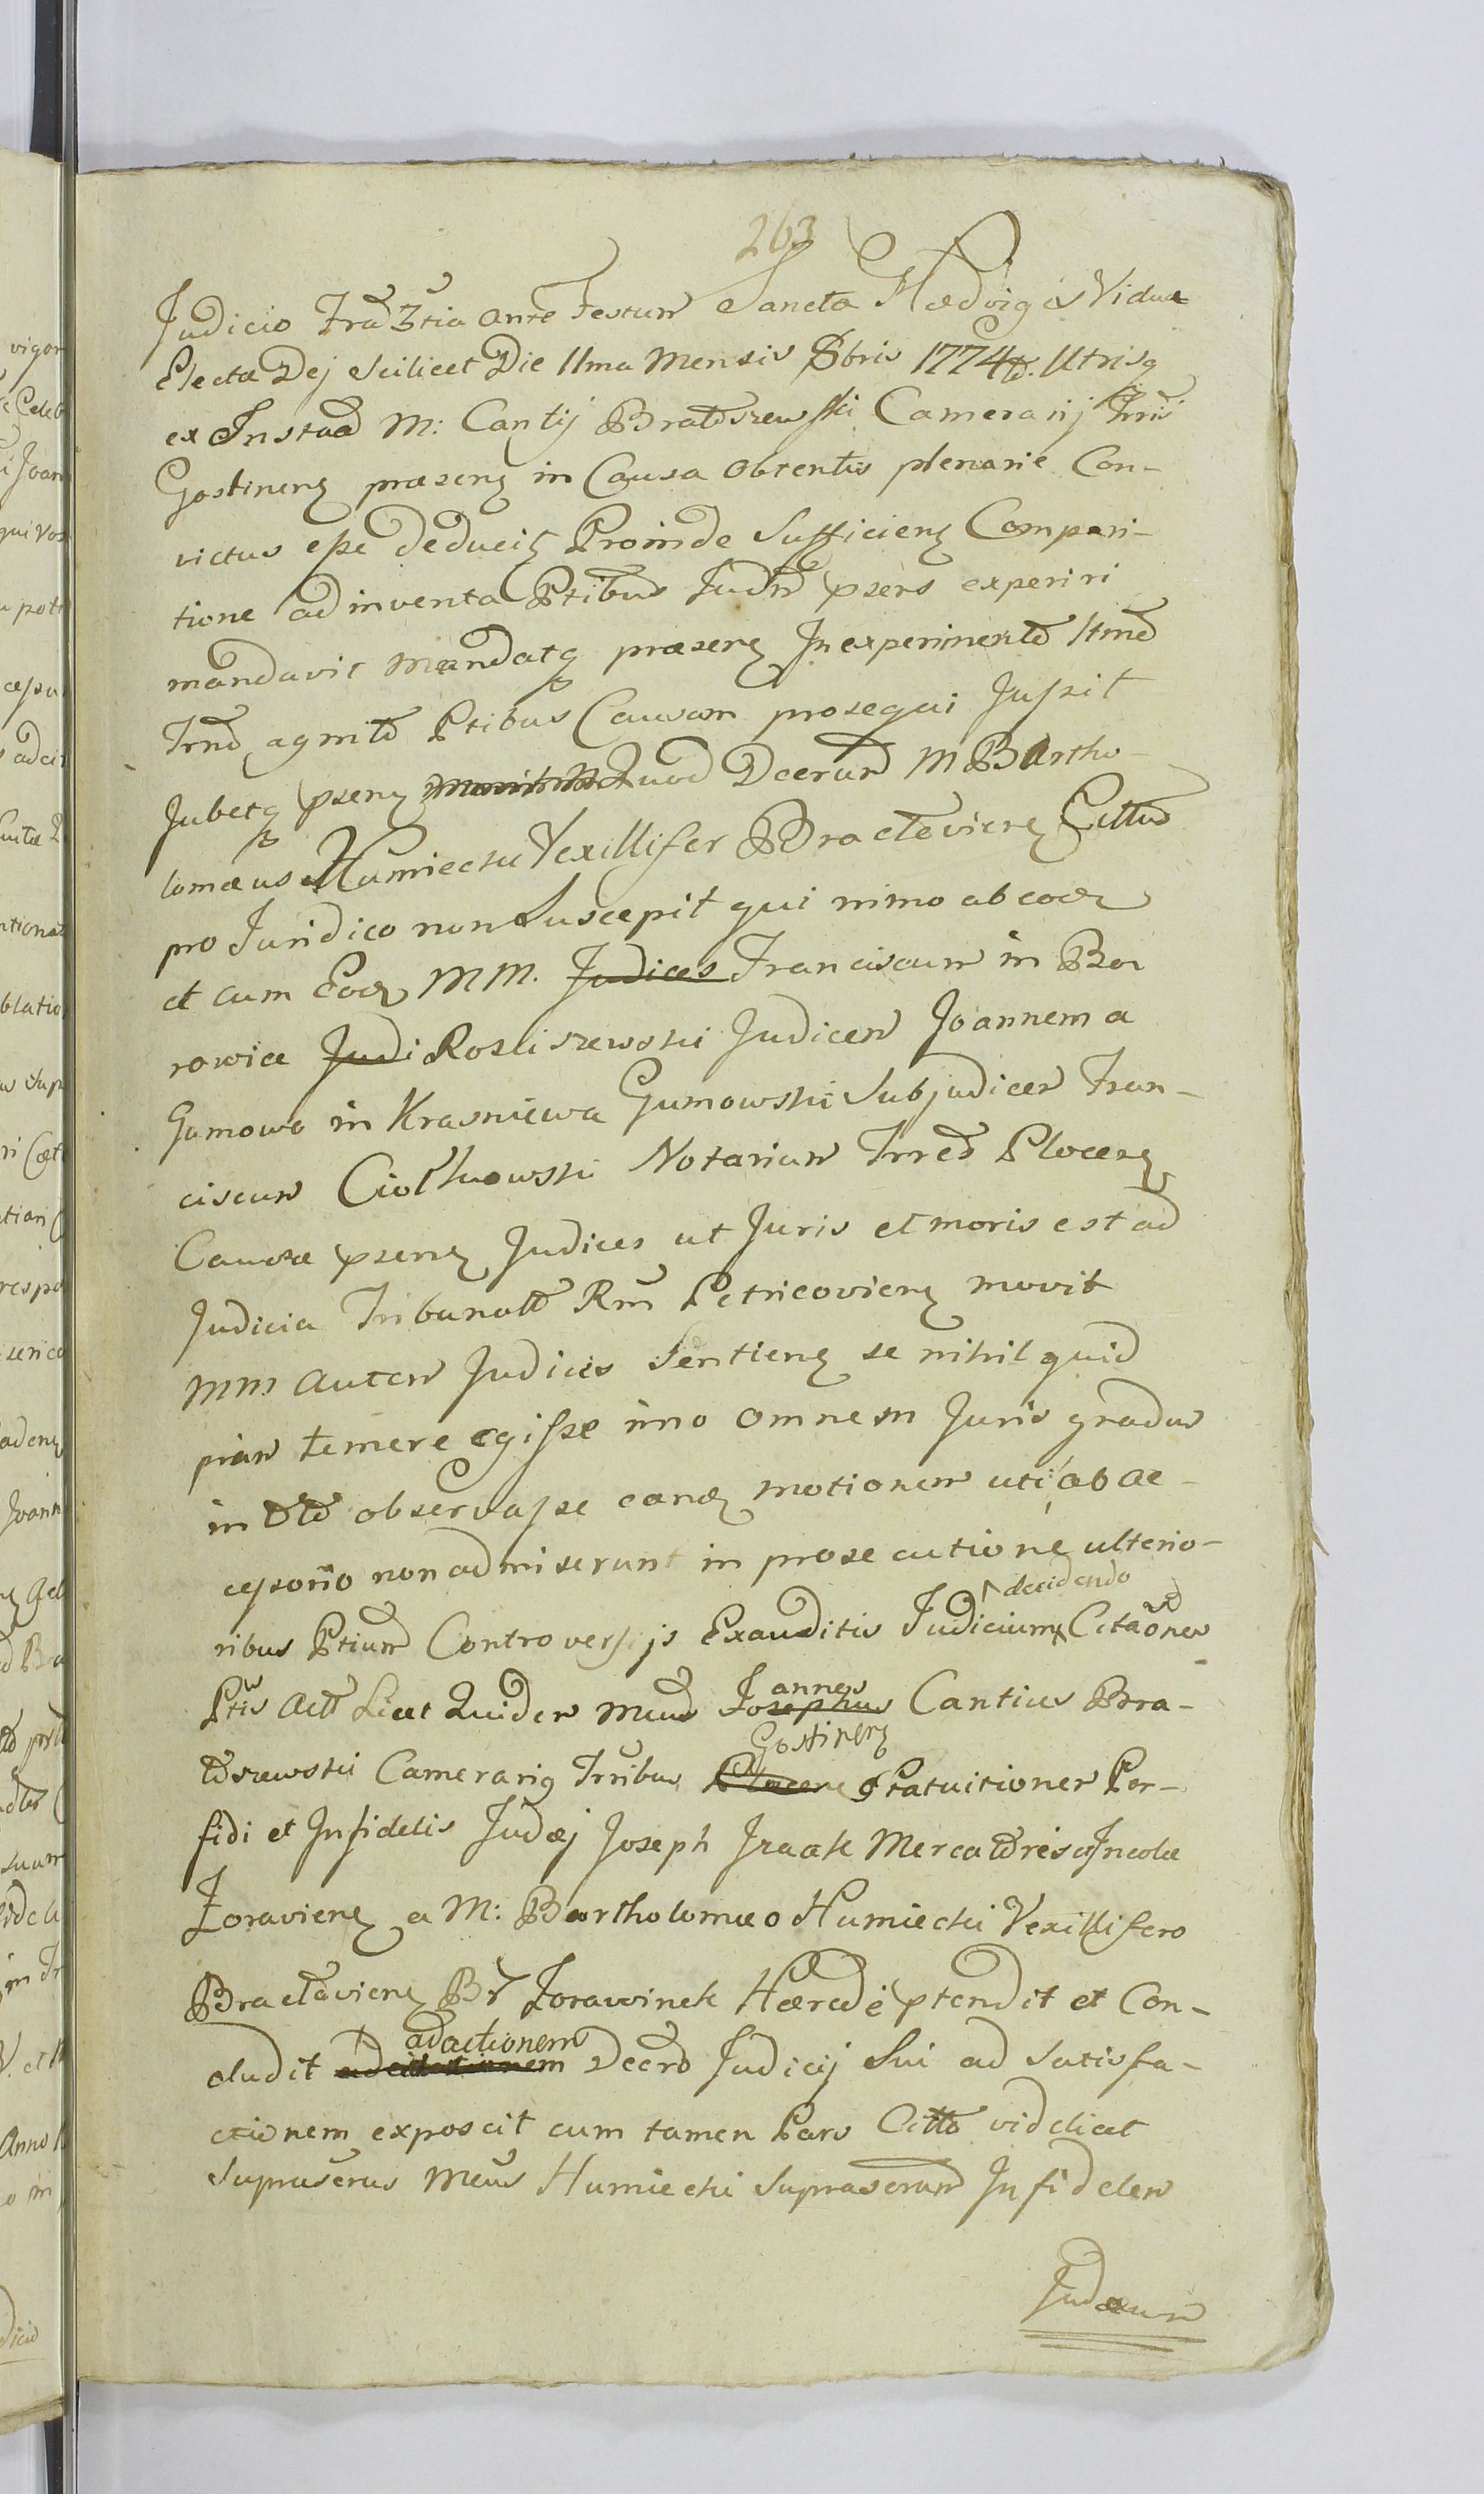 263
Judicio Frā 3tia ante Festum Sancta Hedvigis Vidua
Electa Dej scilicet Die 11ma Mensis 8bris 1774to. Utrisq
ex Instaā M: Cantij Bratoszewski Camerarij Trris
Gostinenȝ praesenȝ in Causa obtentus plenarie Con-
victus esse deducitȝ Proinde Sufficienȝ Compari-
tione adinventa Ptibus Judm psens experiri
mandavit mandatq praesenȝ In experimento Itmo
Trno agnito Ptibus Causam prosequi Jussit
Jubetq psenȝ Quod Dcerum M Bartho-
lomaeus Humiecki Vexillifer Bractavienȝ Cittus
pro Juridico non Suscepit qui nimo ab eodȝ
et cum Eodȝ MM. Judices Franciscum in Bor
rowice Judi Rosliszewski Judicem Joannem a
Gumowo in Krasniewa Gumowski Subjudicem Fran-
ciscum Ciołkowski Notarium Trrēs Plocenȝ
Causae psenȝ Judices ut Juris et moris est ad
Judicia Tribunatt Rni Petricovienȝ movit
MM autem Judices Sentienȝ se nihil quid
piam temere egisse imo omnem Juris gradum
in toto observasse eandȝ motionem uti ab ac-
cessorio non admiserunt in prosecutione ulterio-
ribus Ptium Controversijs Exauditis Judicium decidendo Citaōnes
Ptis Att Licet Quidem Mcus Josephus annes Cantius Bra-
toszewski Camerarig Trribus Plocene Gostinenȝ Statuitionem Per-
fidi et Infidelis Judaej Joseph Izaak Mercatoris et Incolae
Zoravienȝ a M: Bartholomaeo Humiecki Vexillifero
Bractavienȝ Br Zorawinek Haerede ptendit et Con-
cludit adactionem Dcero Judicij Sui ad satisfa-
ctionem exposcit cum tamen Pars Citto videlicet
Suprascrus Mcus Humiecki Suprascrum Infidelem
Judaeum